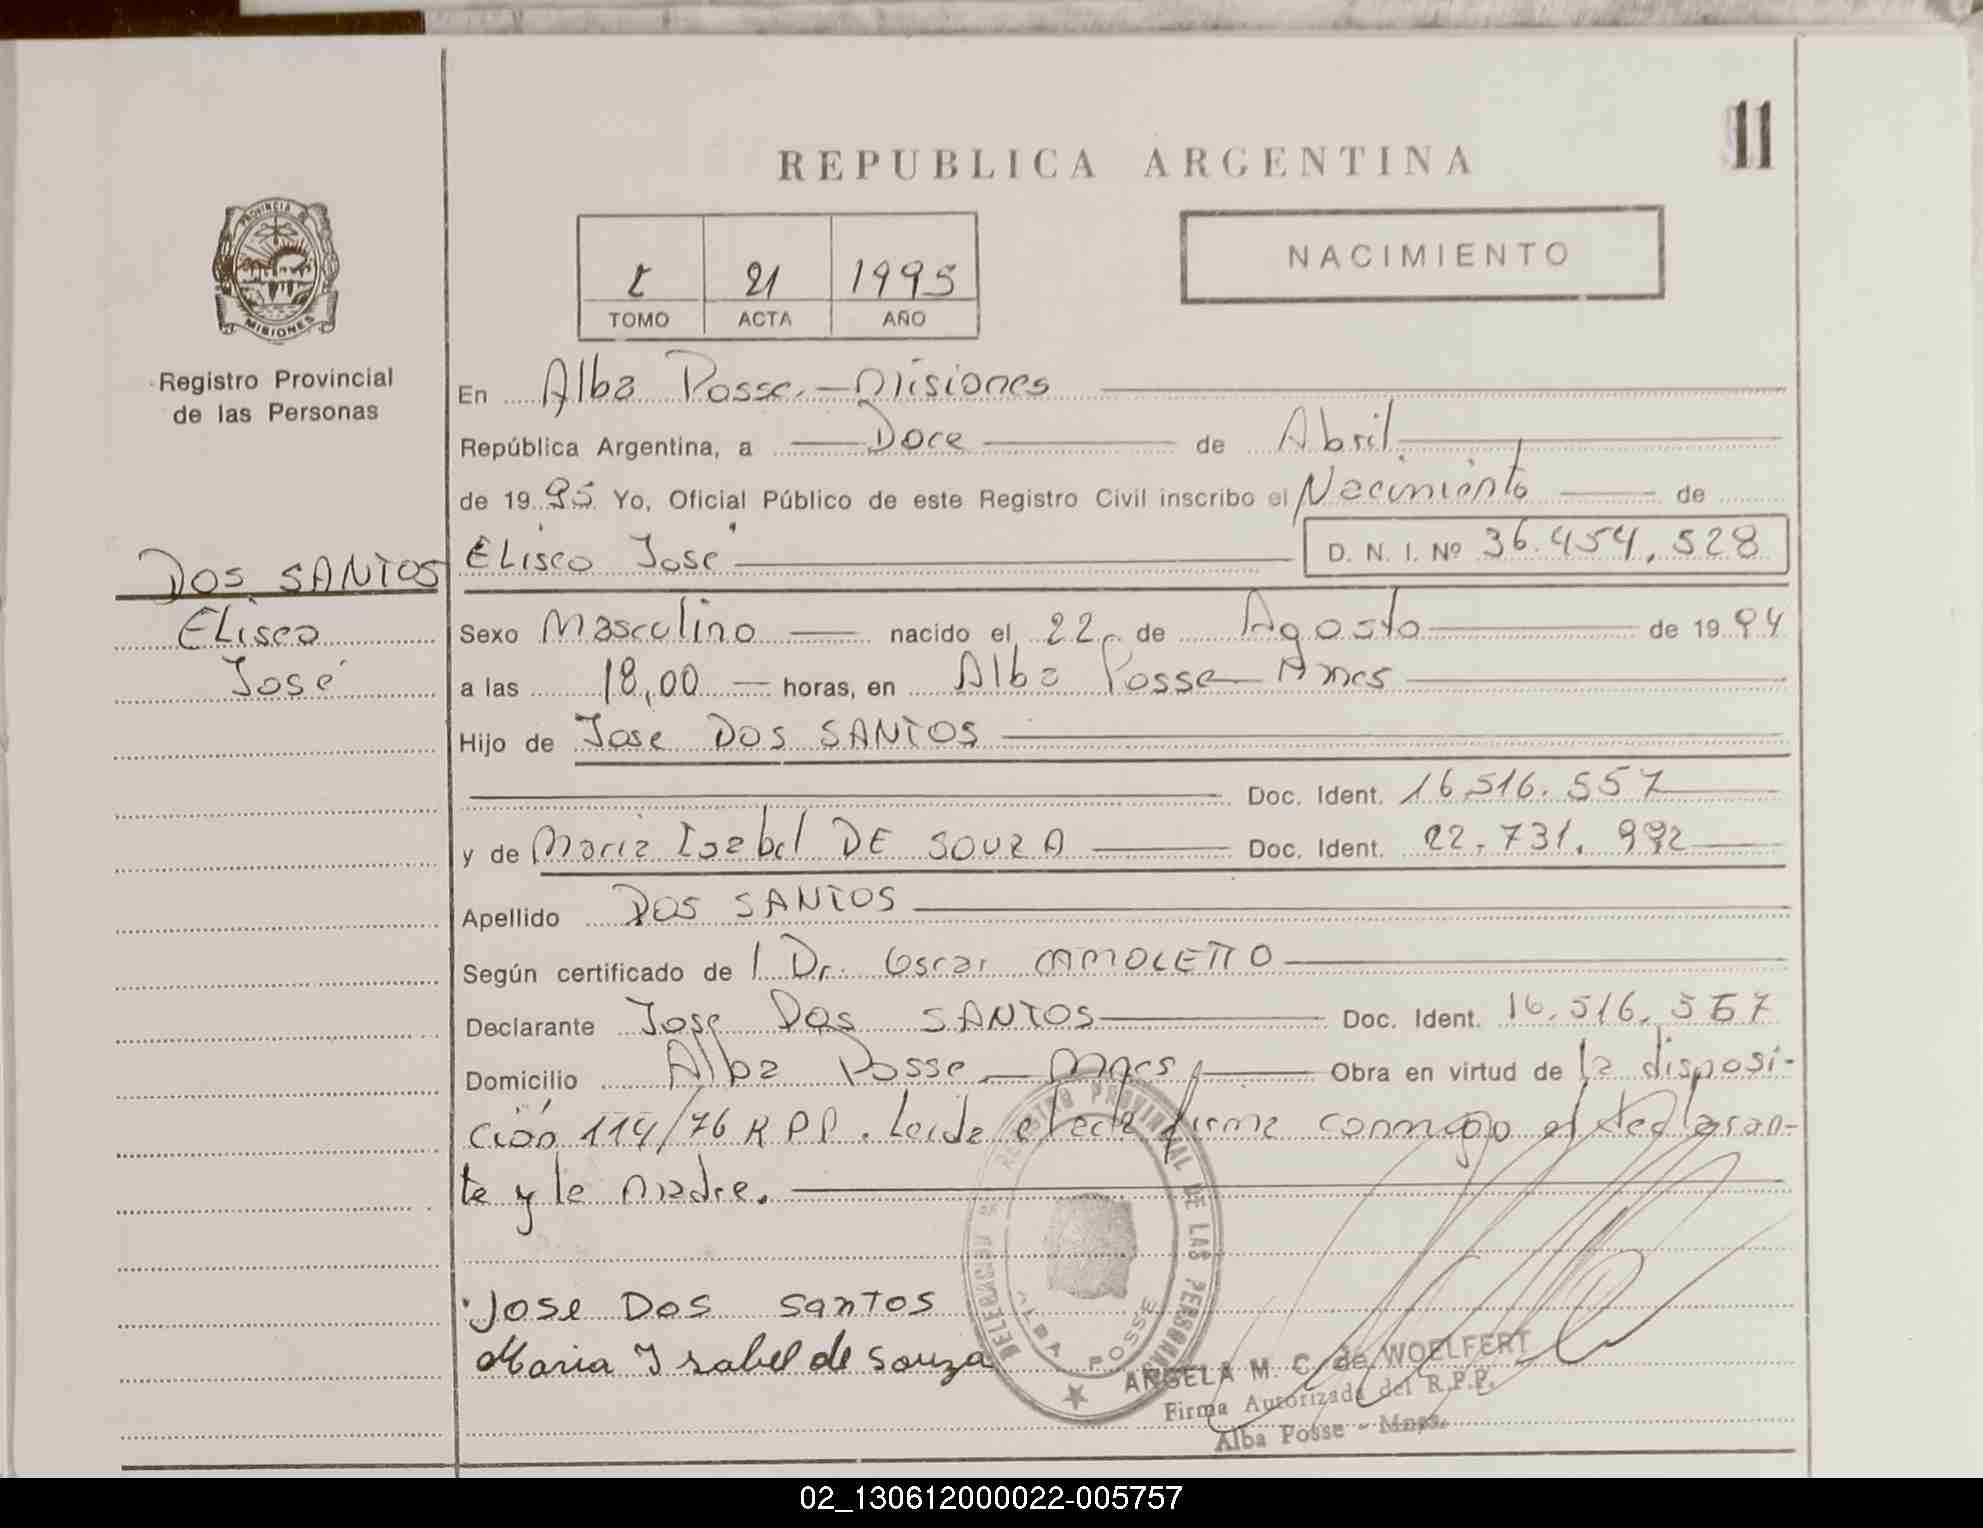 11
REPUBLICA ARGENTINA
PROVINCIA DE
MISIONES
21 1995
TOMO ACTA AÑO
NACIMIENTO
Registro Provincial
de las Personas
En Alba Posse.-Misiones
República Argentina, a Doce de Abril
de 1995 Yo, Oficial Público de este Registro Civil inscribo el Nacimiento de
DOS SANTOS
Eliseo José D. N. I. Nº 36.454.528
Eliseo
José
Sexo Masculino nacido el 22 de Agosto de 1994
a las 18,00 horas, en Alba Posse Mnes
Hijo de José DOS SANTOS
Doc. Ident. 16.516.557
y de Maria Isabel DE SOUZA Doc. Ident. 22.731.992
Apellido DOS SANTOS
Según certificado de Dr. Oscar CAMOLETTO
Declarante José Dos SANTOS Doc. Ident. 16.516.557
Domicilio Alba Posse - Mnes Obra en virtud de la disposi-
ción 114/76 R P P. Leida el acta firma conmigo el declaran-
te y la madre.
DELEGACION REGISTRO PROVINCIAL DE LAS PERSONAS
ALBA POSSE
Jose Dos santos
Maria Isabel de souza
ANGELA M. C. de WOELFERT
Firma Autorizada del R.P.P.
Alba Posse - Mnes.
02_130612000022-005757